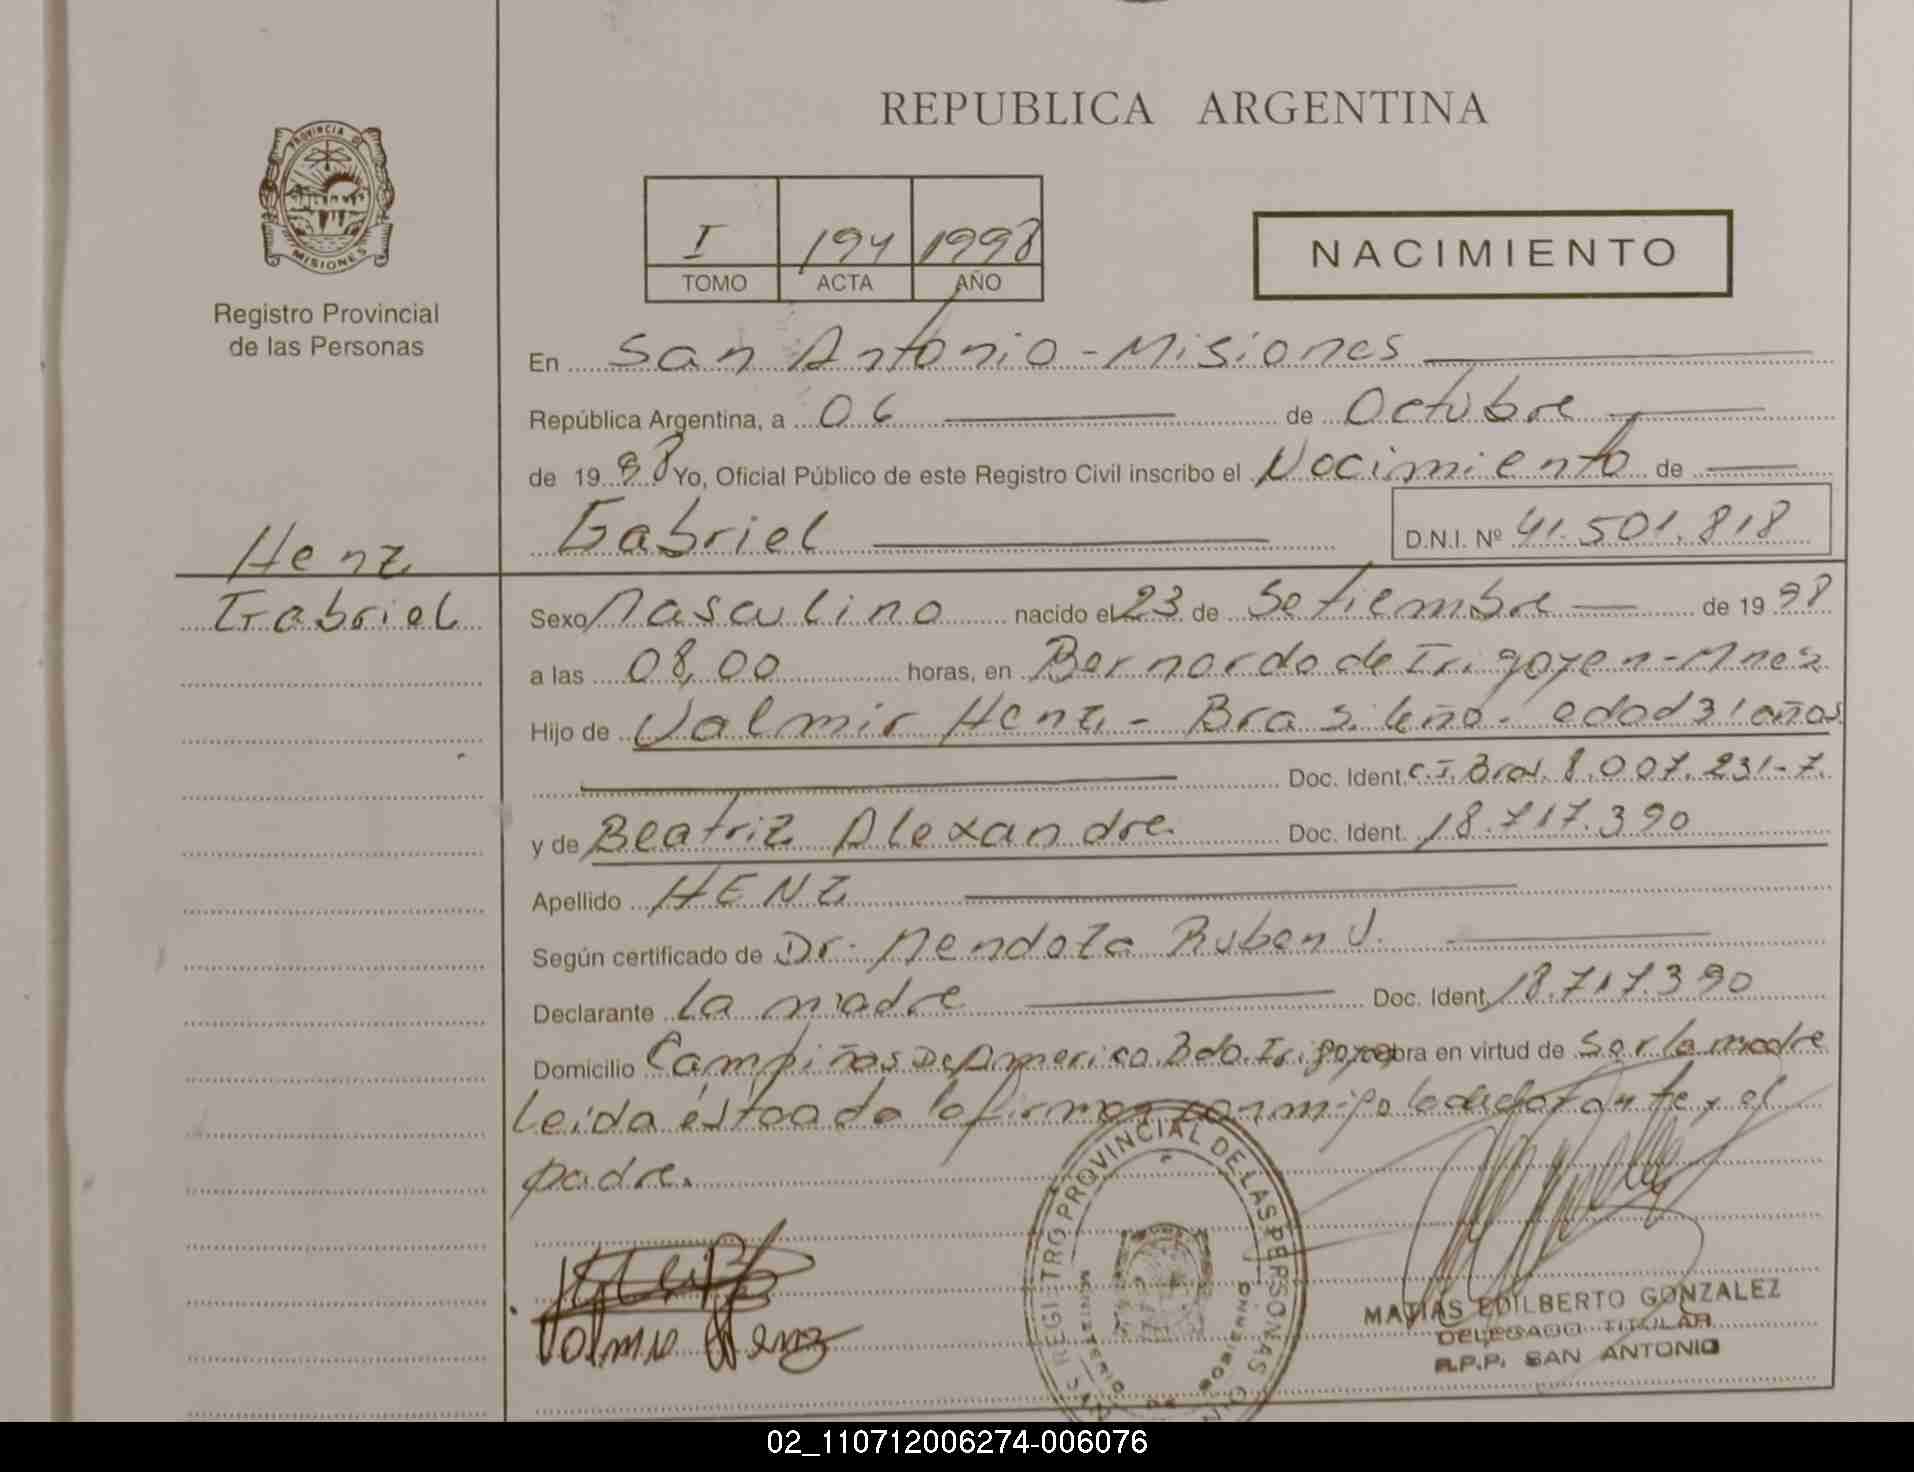 REPUBLICA ARGENTINA
PROVINCIA DE
MISIONES
Registro Provincial
de las Personas
I 194 1998
TOMO ACTA AÑO
NACIMIENTO
En San Antonio - Misiones
República Argentina, a 06 de Octubre
de 1998 Yo, Oficial Público de este Registro Civil inscribo el Nacimiento de
Gabriel D.N.I. Nº 41.501.818
Henz
Gabriel
Sexo Masculino nacido el 23 de Setiembre de 1998
a las 08,00 horas, en Bernardo de Irigoyen - Mnes.
Hijo de Valmir Henz - Brasileño - edad 31 años
Doc. Ident. C.I. Bras. 8.007.231-7.
y de Beatriz Alexandre Doc. Ident. 18.717.390
Apellido HENZ
Según certificado de Dr. Mendoza Ruben V.
Declarante La madre Doc. Ident. 18.717.390
Domicilio Campiñas De America. Bdo. Irigoyen obra en virtud de Ser la madre
Leida ésta acta la firman conmigo la declarante y el
padre.
Valmir Henz
REGISTRO PROVINCIAL DE LAS PERSONAS
MINISTERIO DE GOBIERNO
MATIAS EDILBERTO GONZALEZ
DELEGADO TITULAR
R.P.P. SAN ANTONIO
02_110712006274-006076